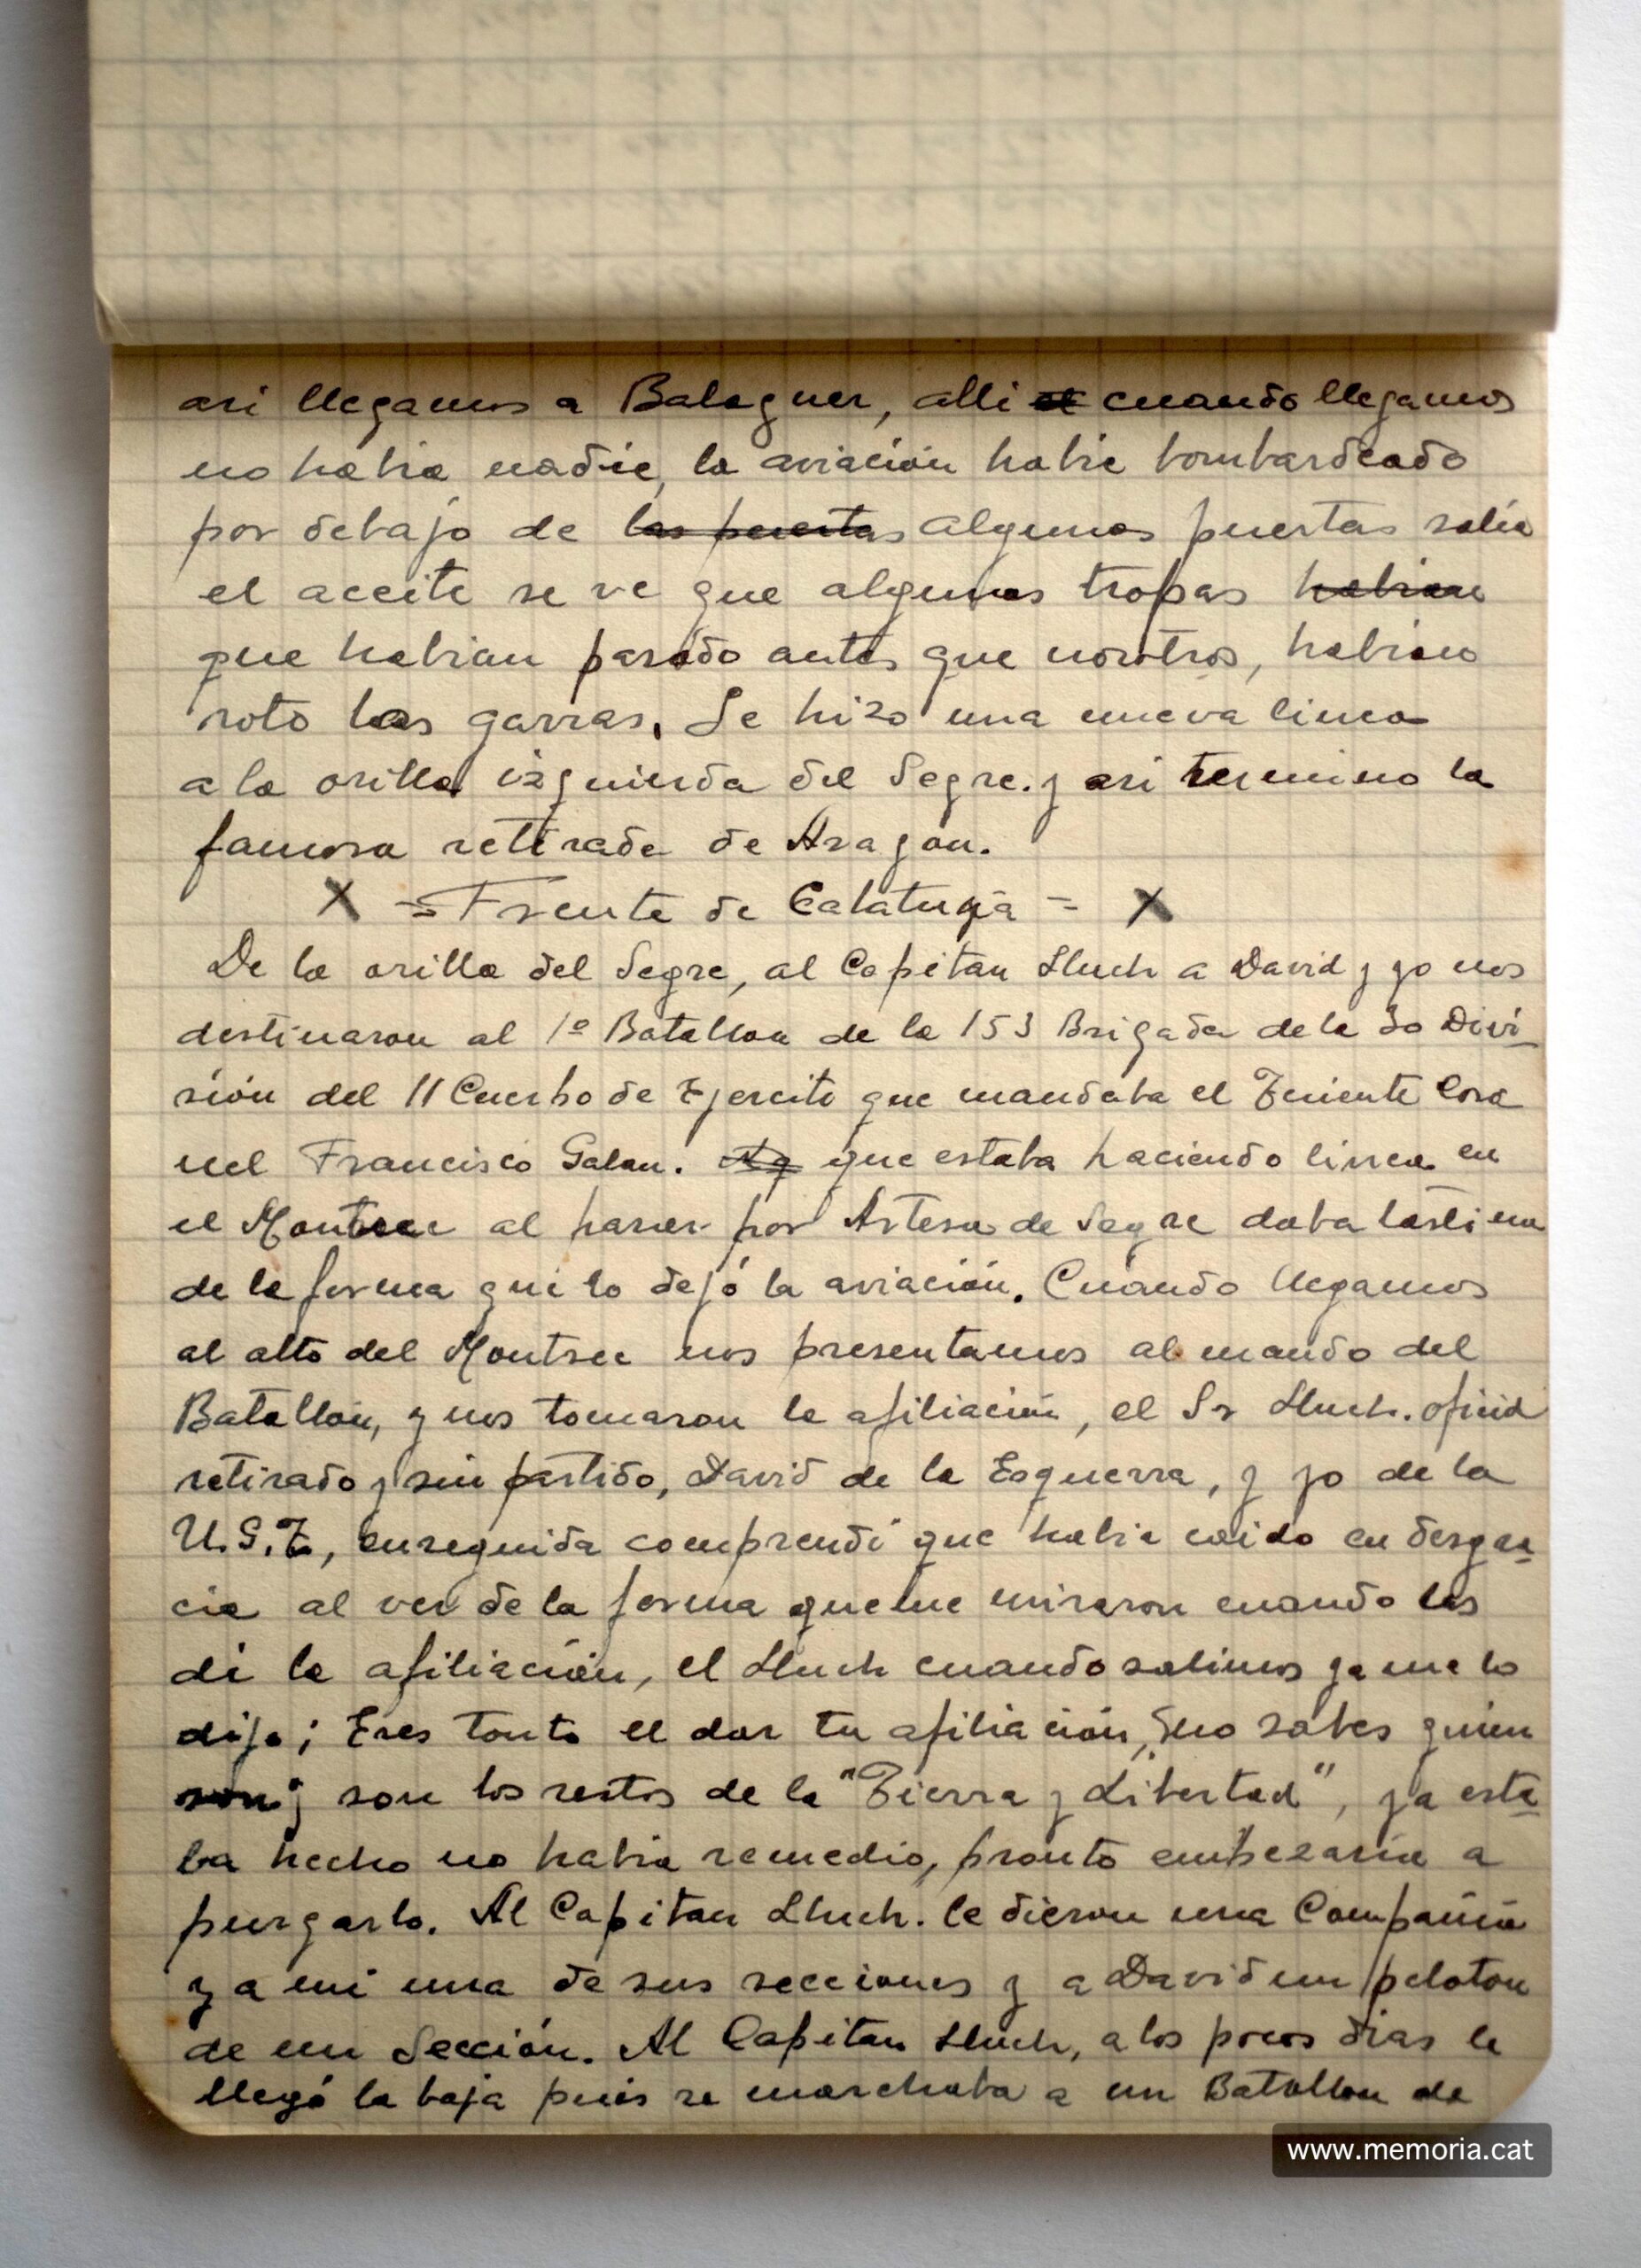 asi llegamos a Balaguer, alli cuando llegamos
no habia nadie, la aviación habia bombardeado
por debajo de las puertas algunas puertas salia
el aceite se ve que algunas tropas habian
que habian pasado antes que nosotros, habian
roto las garras. Se hizo una nueva linea
a la orilla izquierda del Segre. y asi termino la
famosa retirada de Aragón.
X = Frente de Cataluña = X
De la orilla del Segre, al Capitan Lluch a David y yo nos
destinaron al 1º Batallon de la 153 Brigada de la 30 Divi
sión del 11 Cuerpo de Ejercito que mandaba el Teniente Coro
nel Francisco Galan. Aq que estaba haciendo linea en
el Montsec al pasar por Artesa de Segre daba lastima
de la forma que lo dejó la aviación. Cuando llegamos
al alto del Montsec nos presentamos al mando del
Batallón, y nos tomaron la afiliación, el Sr Lluch. oficial
retirado y sin partido, David de la Esquerra, y yo de la
U.G.T, enseguida comprendi que habia caido en desgra
cia al ver de la forma que me miraron cuando les
di la afiliación, el Lluch cuando salimos ya me lo
dijo; Eres tonto el dar tu afiliación, no sabes quien
son; son los restos de la "Tierra y Libertad", ya esta
ba hecho no habia remedio, pronto empezaria a
purgarlo. Al Capitan Lluch. le dieron una Compañia
y a mi una de sus secciones y a David un peloton
de mi Sección. Al Capitan Lluch, a los pocos dias le
llegó la baja pues se marchaba a un Batallon de
www.memoria.cat